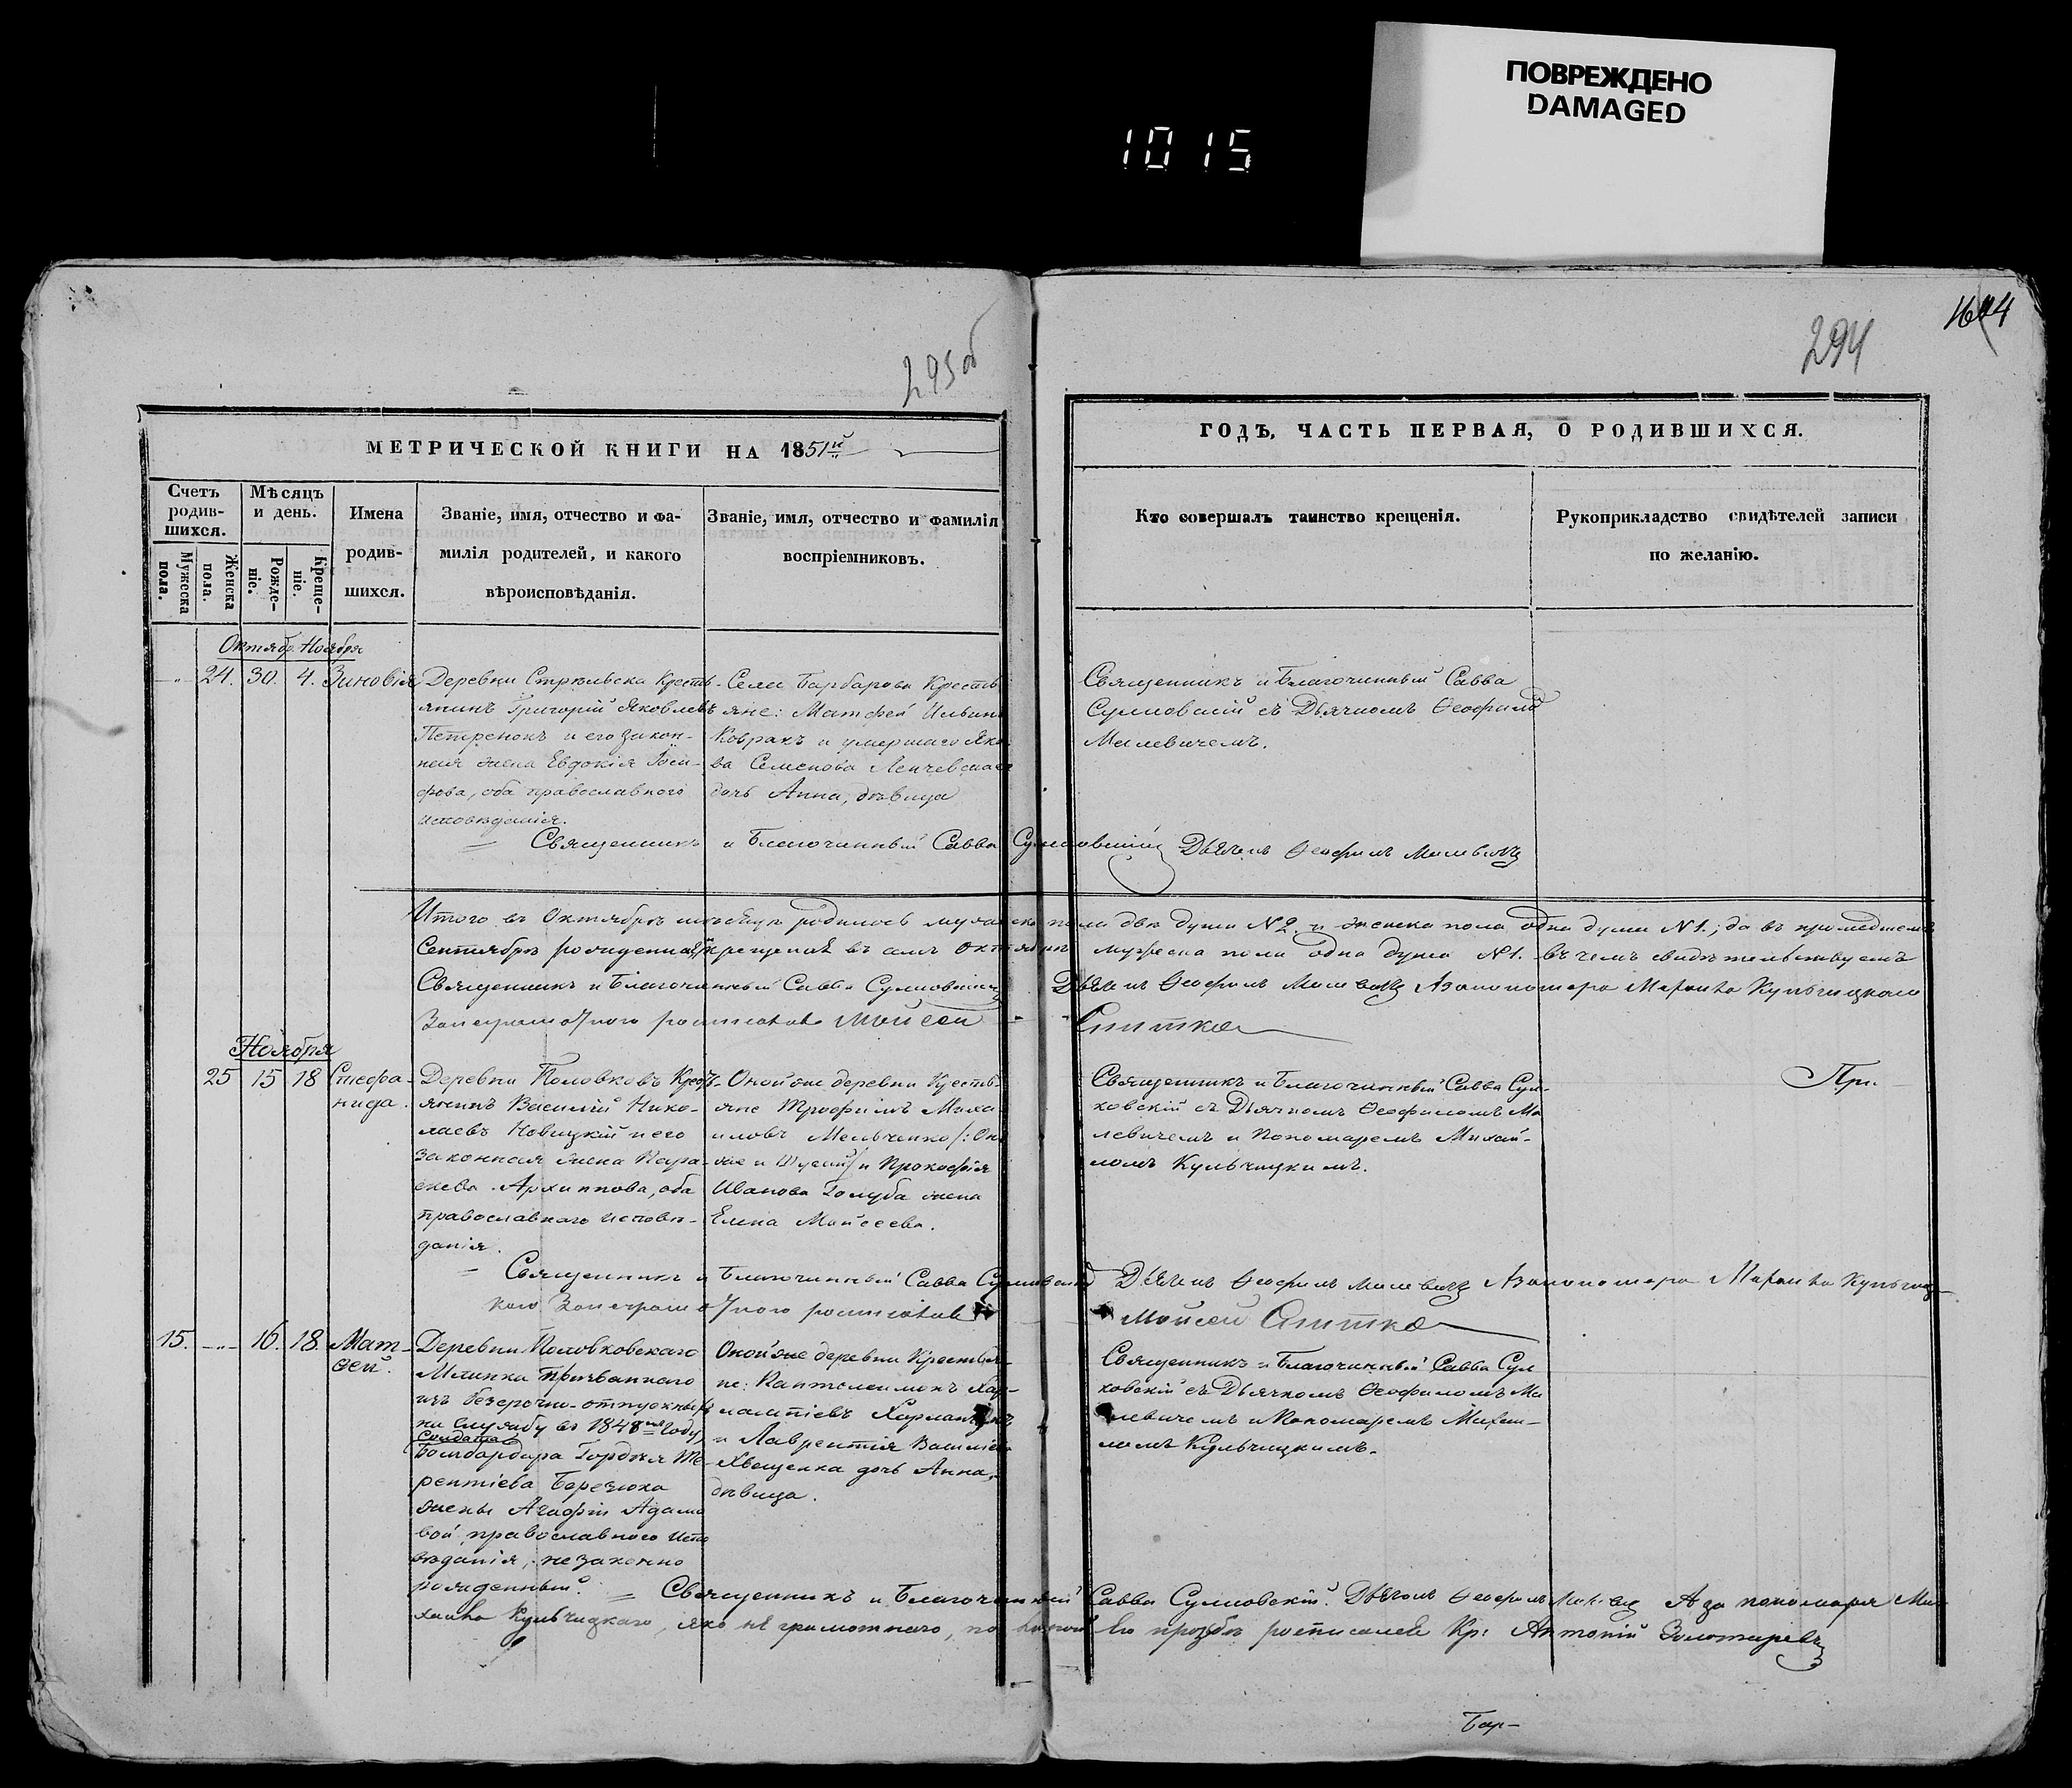 ПОВРЕЖДЕНО
DAMAGED
1015
293об
294
МЕТРИЧЕСКОЙ КНИГИ НА 1851й
ГОДЪ, ЧАСТЬ ПЕРВАЯ, О РОДИВШИХСЯ.
Счетъ родив-шихся.
Мужеска пола.
Женска пола.
Мѣсяцъ и день.
Рожде-ніе.
Креще-ніе.
Имена родив-шихся.
Званіе, имя, отчество и фа-
милія родителей, и какого
вѣроисповѣданія.
Званіе, имя, отчество и фамилія
воспріемниковъ.
Кто совершалъ таинство крещенія.
Рукоприкладство свидѣтелей записи
по желанію.
Октябр. Ноября
24. 30. 4. Зиновія
Деревни Стрѣльска Кресть-
янинъ Григорій Яковлевъ
Петренокъ и его закон-
ная жена Евдокія Іоси-
фова, оба православного
исповѣданія.
Села Барбарова Кресть
яне: Матфей Ильинъ
Ковракъ и умершаго Яко-
ва Семенова
дочь Анна, дѣвица
Священникъ и Благочинный Савва
съ Дьячкомъ Ѳеофило
Малевичемъ.
Священникъ и Благочинный Савва Сулковскій Дьячекъ Ѳеофилъ Малевичъ
Итого въ Октябрѣ мѣсяцѣ родилось мужеска пола двѣ души №2. и женска пола одна душа №1.; да въ прошедшемъ
Сентябрѣ рожденная крещена въ семъ Октябрѣ мужеска пола одна душа №1. въ чемъ свидѣтельствуемъ
Священникъ и Благочинный Савва Сулковскій Дьячекъ Ѳеофилъ Малевичъ А за пономара Михаила Кульчицкаго
Мойсей
Ноября
25 15 18 Стефа-
нида.
Деревни Половковъ Крес-
янинъ Василій Нико-
лаевъ Новицкій и его
законная жена Пара-
скева Архиппова, оба
православнаго исповѣ-
данія.
Оной же деревни Кресть-
яне Трофимъ Миха
иловъ Мельченко
и Прокофія
Иванова Голуба жена
Елена Мойсеева.
Священникъ и Благочинный Савва Сул-
ковскій съ Дьячкомъ Ѳеофиломъ Ма
левичемъ и Пономаремъ Михай-
ломъ Кульчицкимъ.
Пр.
Священникъ и Благочинный Савва Сулковскій Дьячекъ Ѳеофилъ Малевичъ А за пономара Михаила Кульчиц-
каго
Мойсей
15. 16. 18. Мат-
ѳей.
Деревни Половковскаго
Млинка призваннаго
изъ безсрочно-отпускныхъ
на службу въ 1848 году
Солдата
Бомбардира Гордѣя Те-
рентіева Березюка
жены Агафіи Адамо
вой, православного испо
вѣданія, незаконно
рожденный.
Оной же деревни Крестья-
не: Пантелеимонъ Хар-
лампіевъ
и Лаврентія Василіева
Хвещенка дочь Анна,
дѣвица.
Священникъ и Благочинный Савва Сул
ковскій съ Дьячкомъ Ѳеофиломъ Ма
левичемъ и Пономаремъ Михаи-
ломъ Кульчицкимъ.
Священникъ и Благочинный Савва Сулковскій. Дьячекъ Ѳеофилъ А за пономаря Ми-
хаила Кульчицкаго, яко не грамотнаго, по его прозбѣ росписался Кр: Антоній Золотаревъ
Бар-